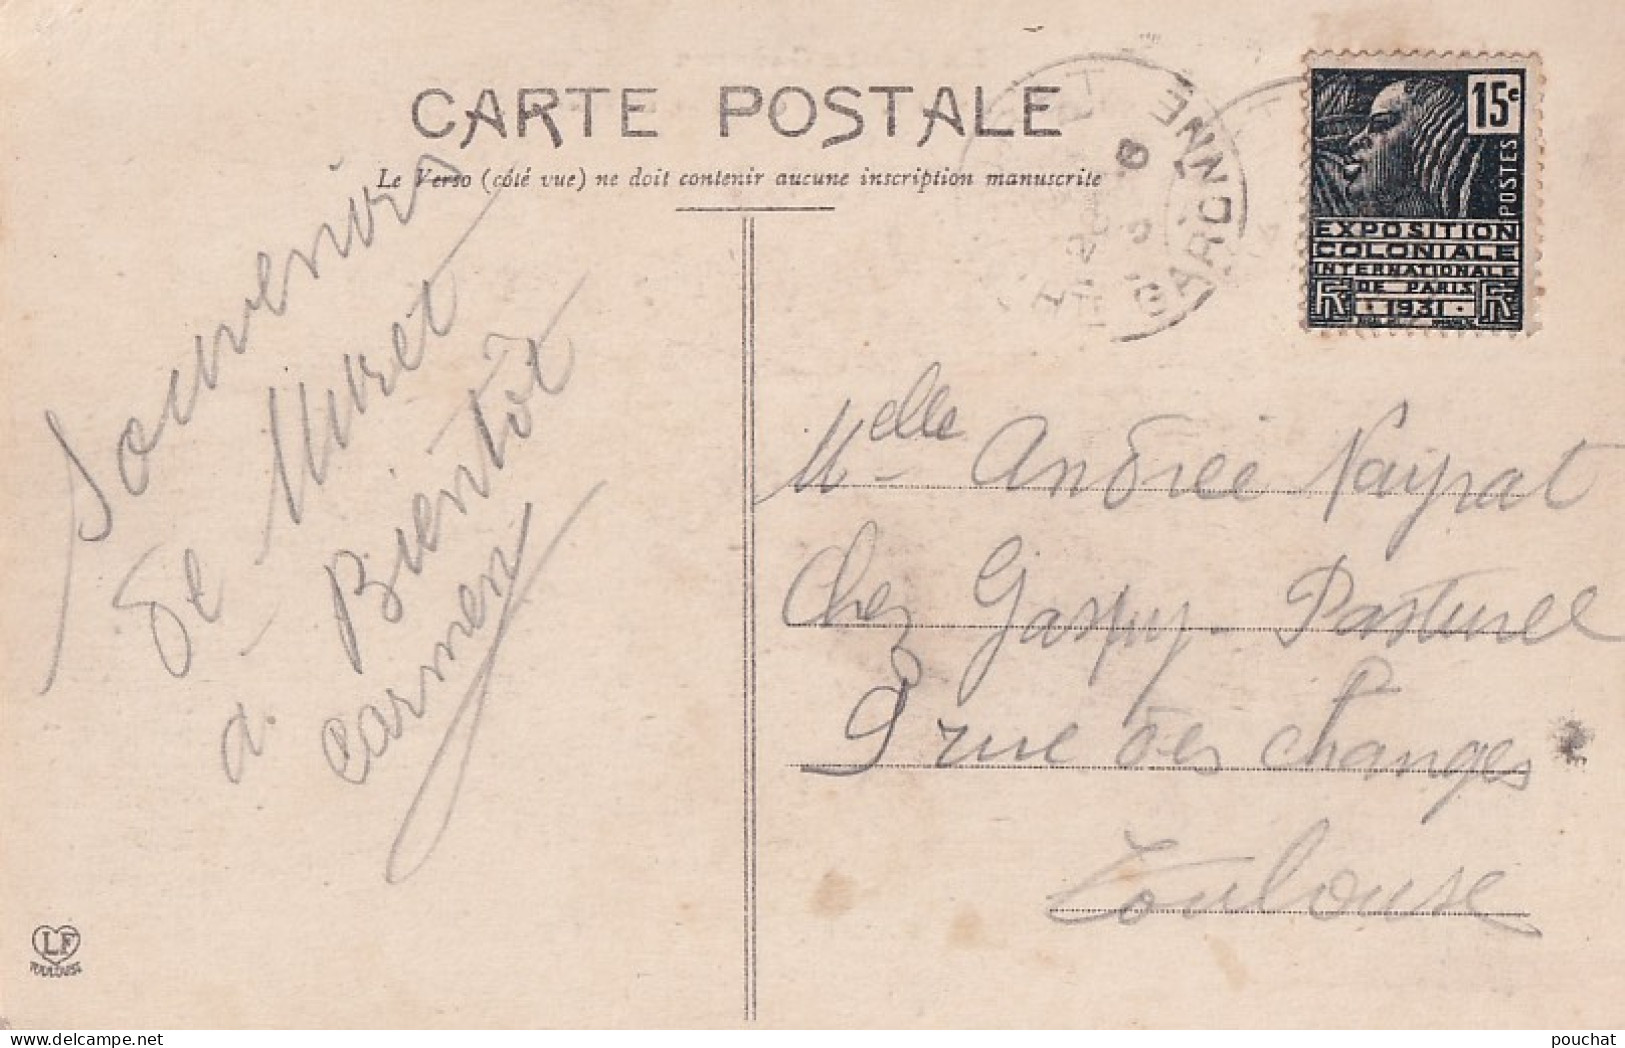 CARTE POSTALE
Le Verso (côté vue) ne doit contenir aucune inscription manuscrite
Souvenirs
de Muret
à Bientôt
Carmen
15c
POSTES
EXPOSITION
COLONIALE
INTERNATIONALE
DE PARIS
1931
RF RF
GARONNE
Melle Andrée Nayrat
Chez Gaspuy - Pasturel
9 rue des Changes
Toulouse
LF
TOULOUSE
pouchat